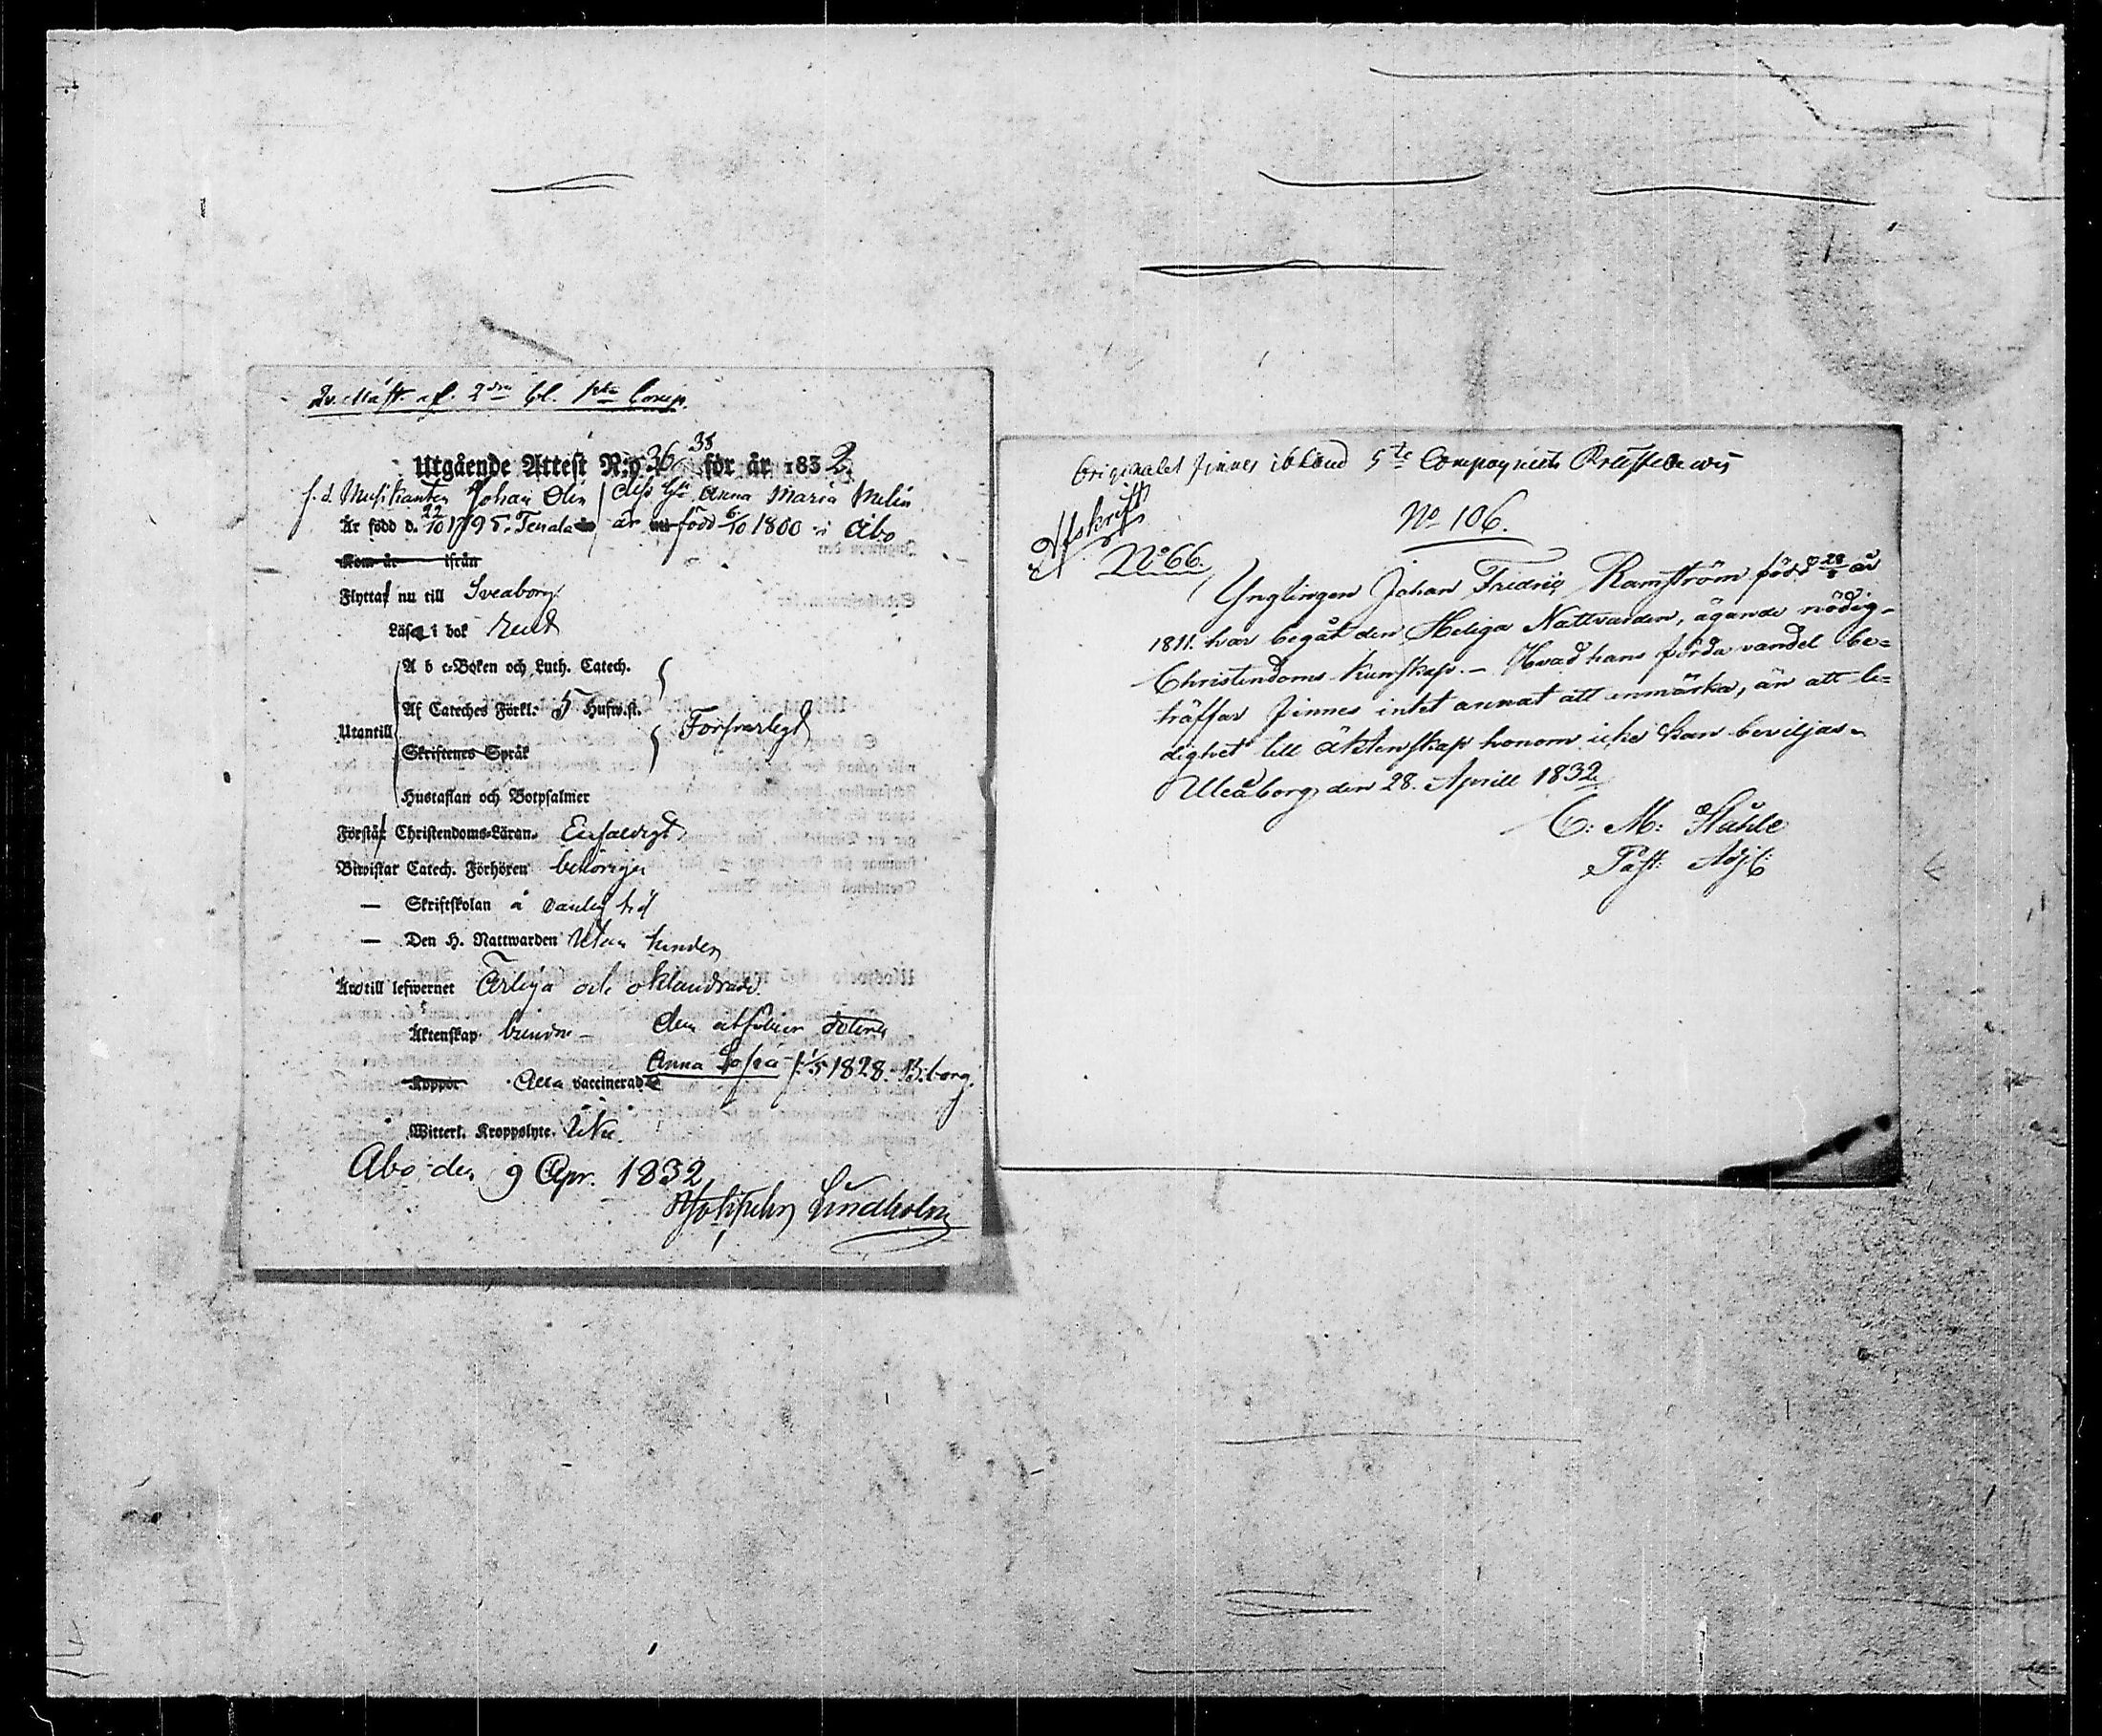 af. 2dra bl. 1sta Comp.
Utgående Attest N:o 36 38 för år 1832.
f. d. Musikanten Johan Olin / dess Hu Anna Maria Melin
Är född d. 22/10 1795. Tenala / är född 6/10 1800 i Åbo
Kom år ifrån
Flyttar nu till Sveaborg.
Läser i bok rent
A b c-Boken och Luth. Catech.
Af Cateches Förkl. 5 Hufw.st.
Utantill Försvarligt
Skriftenes Språk
Hustaflan och Botpsalmer
Förstår Christendoms-Läran. Enfaldigt
Biwistar Catech. Förhören behörigen
— Skriftskolan å vanlig tid
— Den H. Nattwarden Utan hinder
Äro till lefwernet Ärliga och oklandrade.
Äktenskap bundne — dem åtföljer dottren
Anna Sofia f. 1/5 1828. B:borg.
Koppor Alla vaccinerade
Witterl. Kroppslyte. Utan.
Åbo den 9 Apr. 1832
Lindholm
Originalet finnes ibland 5te Compagniets
Afskrift
No 106.
No 66.
Ynglingen Johan Fredric Ramström född 28/8 år
1811. har begått den Heliga Nattvarden, ägande nödig
Christendoms Kunskap. — Hvad hans förda vandel be-
träffar finnes intet annat att anmärka, än att le-
dighet till äktenskap honom icke kan beviljas.
Uleåborg den 28. Aprill 1832.
C: M: Ståhle
Past: Adj: